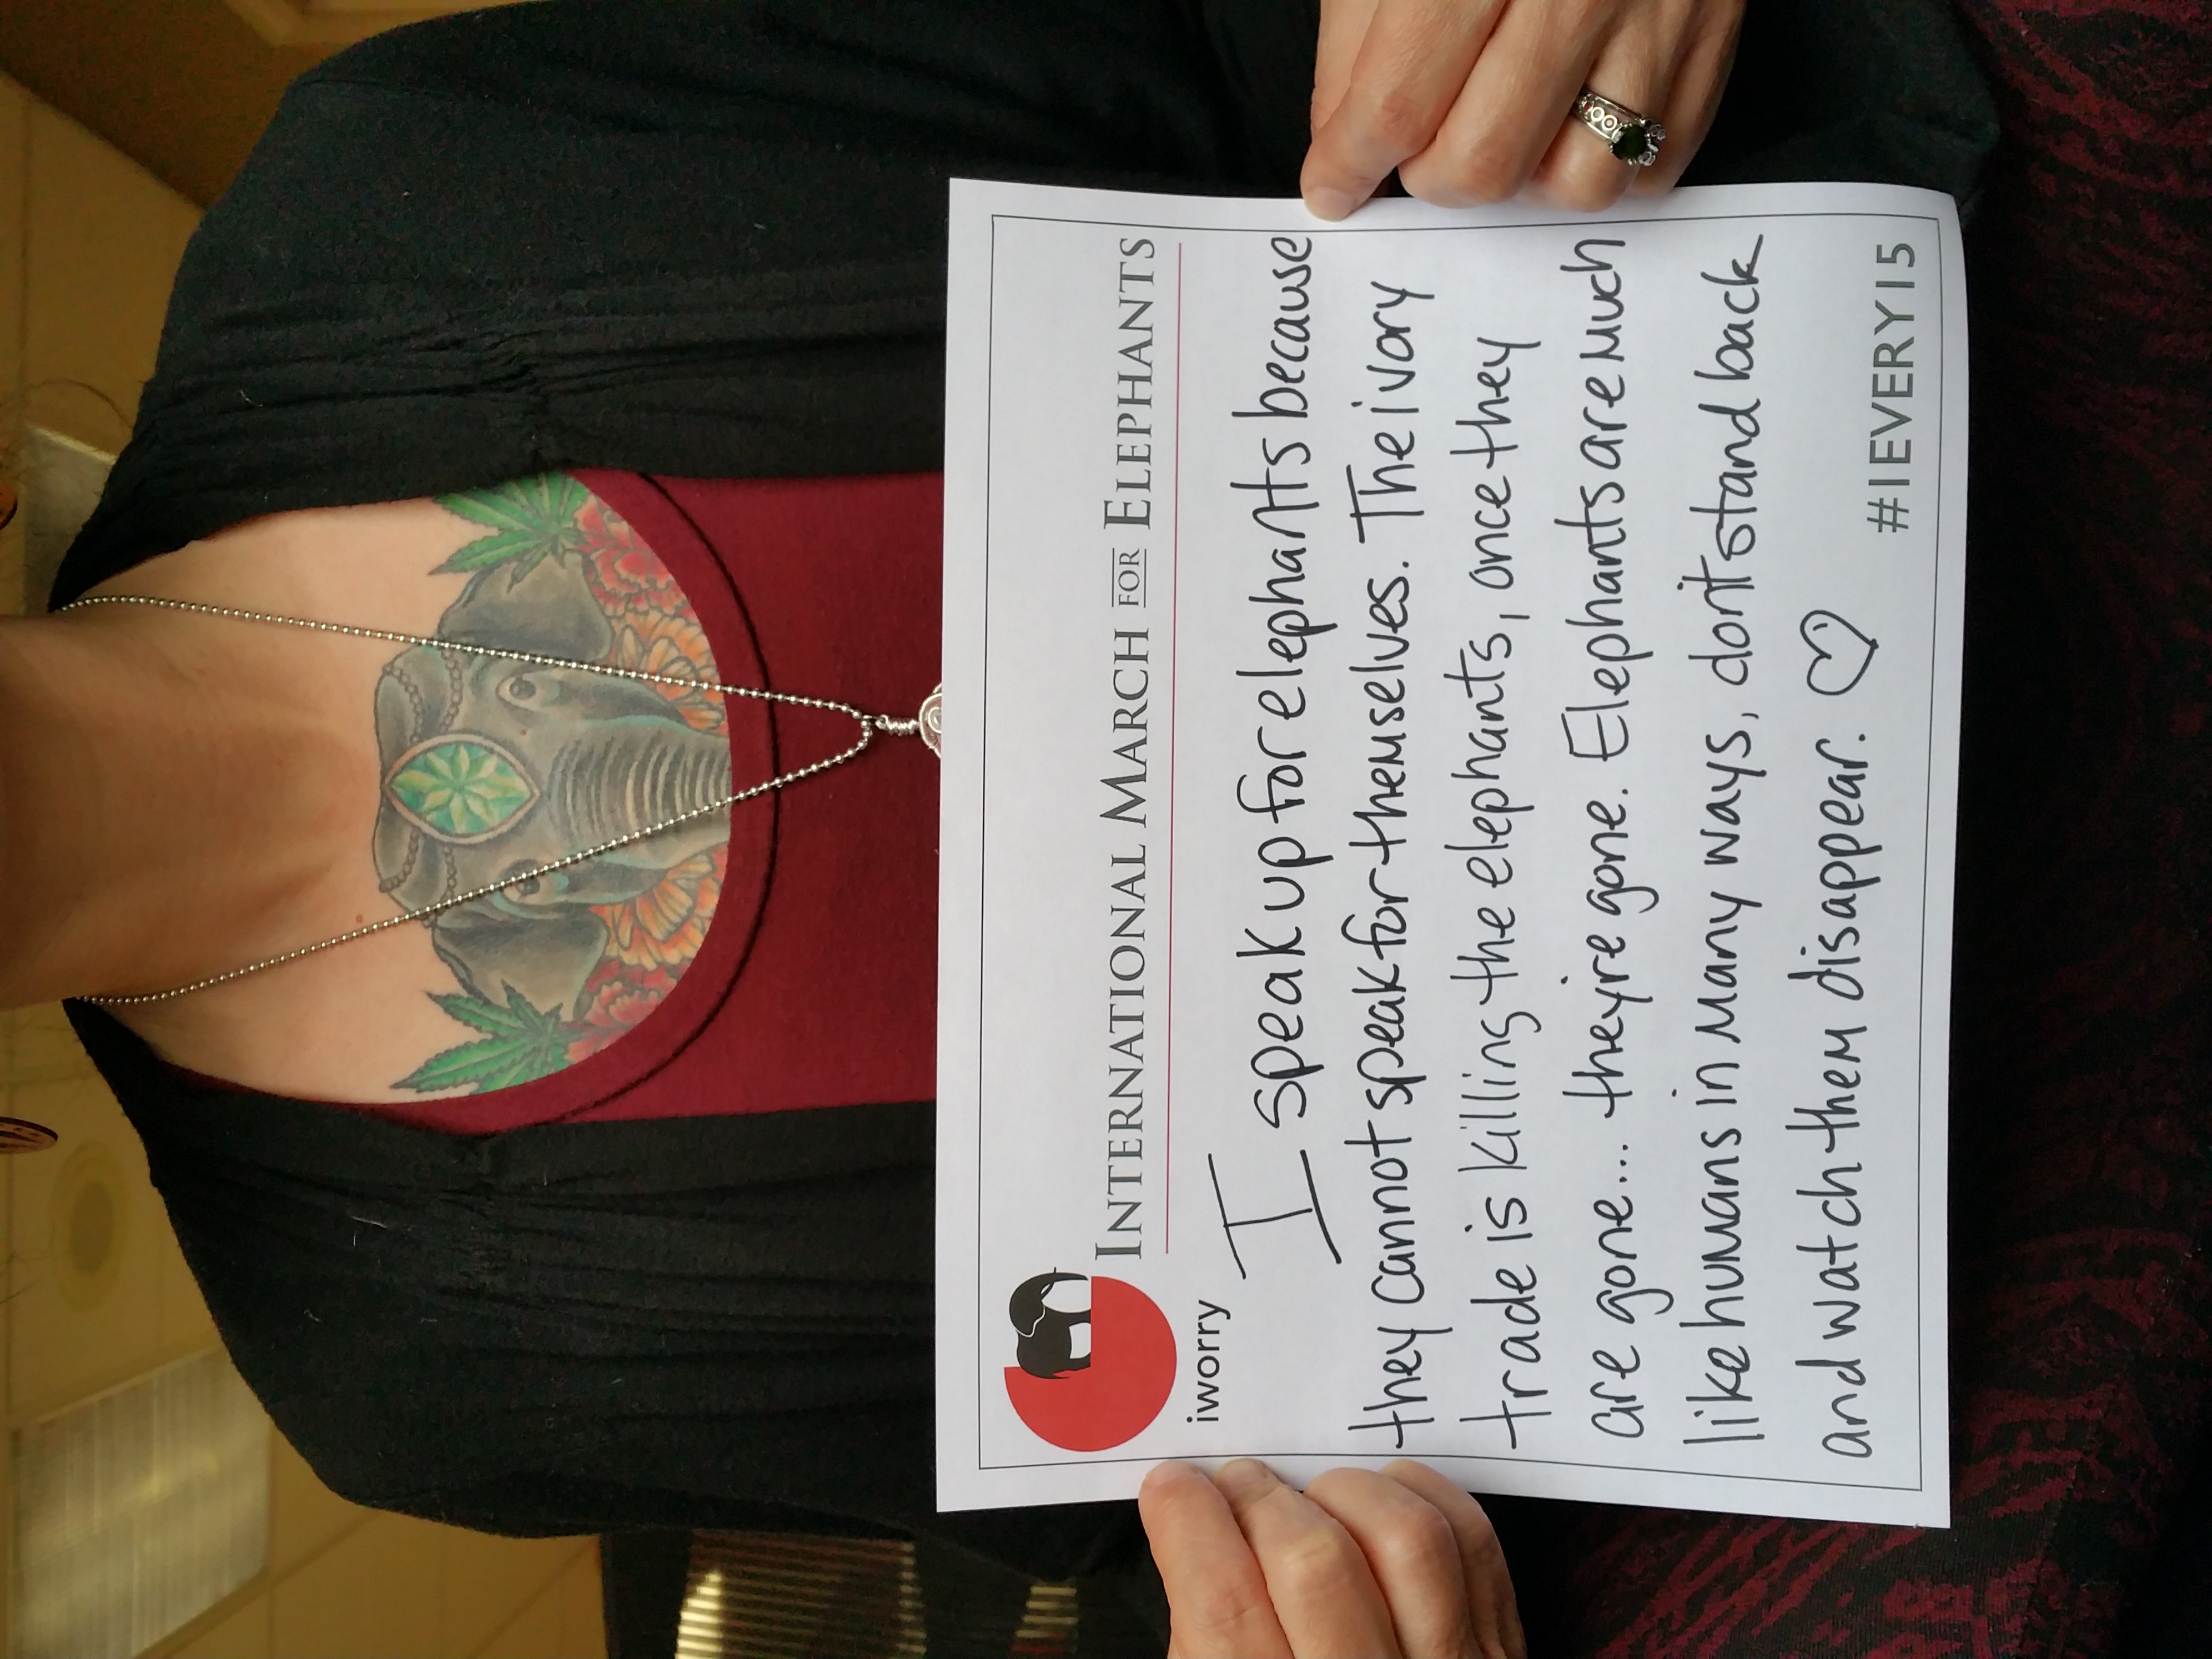 INTERNATIONAL MARCH FOR ELEPHANTS
iworry
I speak up for elephants because
they cannot speak for themselves. The ivory
trade is killing the elephants, once they
are gone... they're gone. Elephants are much
like humans in many ways, don't stand back
and watch them disappear. ♡
#1EVERY15